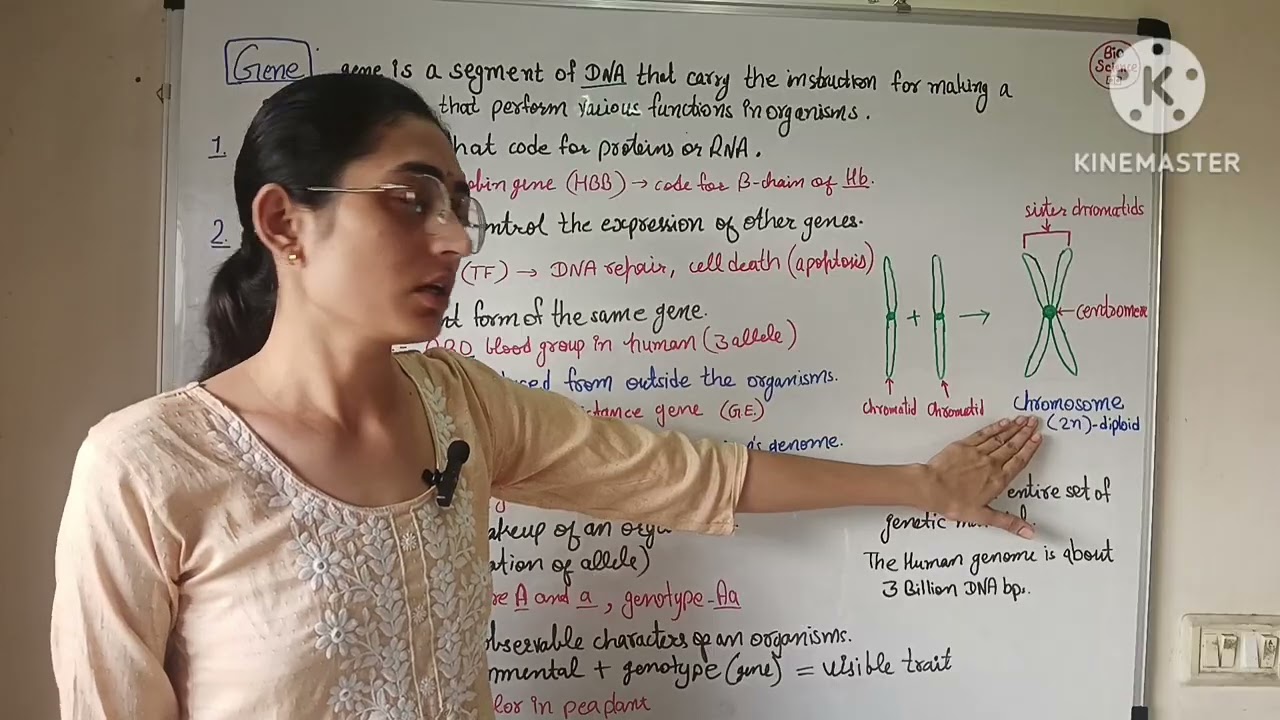 Gene
gene is a segment of DNA that carry the instruction for making a
that perform various functions in organisms.
1.
that code for proteins or RNA.
gene (HBB) → code for β-chain of Hb.
2.
the expression of other genes.
(TF) → DNA repair, cell death (apoptosis)
form of the same gene.
ABO blood group in human (3 allele)
from outside the organisms.
gene (GE)
denome.
of an
of allele)
A and a, genotype-Aa
characters of an organisms.
+ genotype (gene) = visible trait
in peaplant
Bio
Science
KINEMASTER
sister chromatids
+ →
centromere
chromatid chromatid
chromosome
(2n)-diploid
entire set of
genetic
The Human genome is about
3 Billion DNA bp.